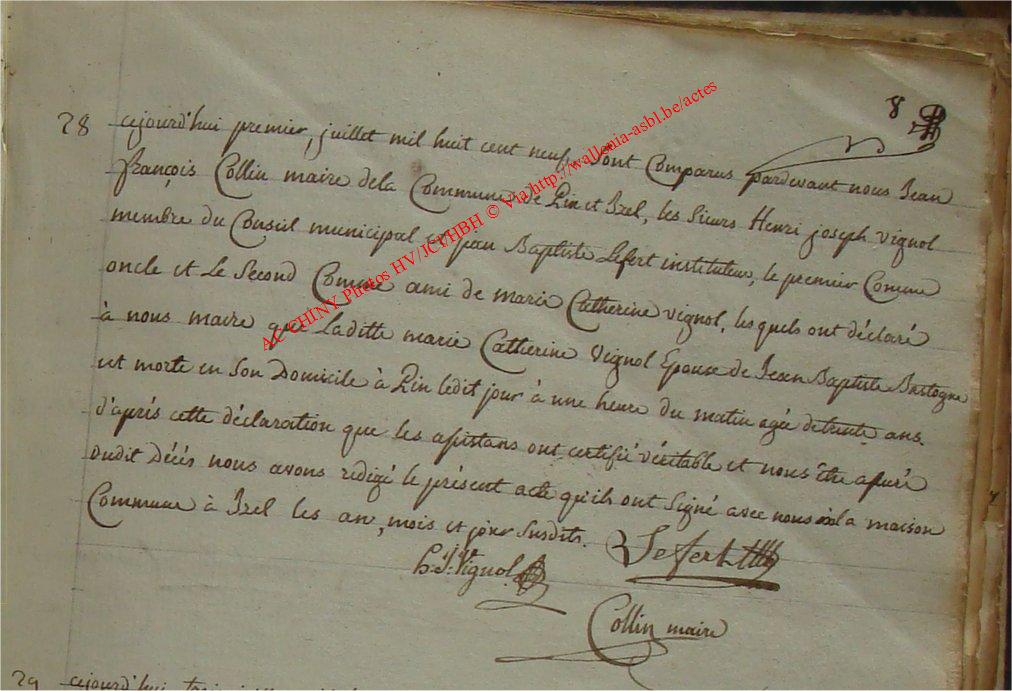 8
28 cejourd'hui premier, juillet mil huit cent neuf, Sont Comparus pardevant nous Jean
françois Collin maire dela Commune de Pin et Izel, les Sieurs Henri joseph vignol
membre du Conseil municipal et jean Baptiste Lefert instituteur, le premier Comme
oncle et Le Second Comme ami de marie Catherine vignol, lesquels ont déclaré
à nous maire que Laditte marie Catherine Vignol Epouse de Jean Baptiste Bastogne
est morte en Son Domicile à Pin ledit jour à une heure du matin agée detrente ans.
d'aprés cette déclaration que les assistans ont certifié véritable et nous être assuré
dudit Décés nous avons redigé le présent acte qu'ils ont Signé avec nous a la maison
Commune à Izel les an, mois et jour Susdits.
Lefert
h: J: Vignol
Collin maire
29 cejourd'hui trois
AC CHINY Photos HV/JCI/HBH © Via http://wallonia-asbl.be/actes